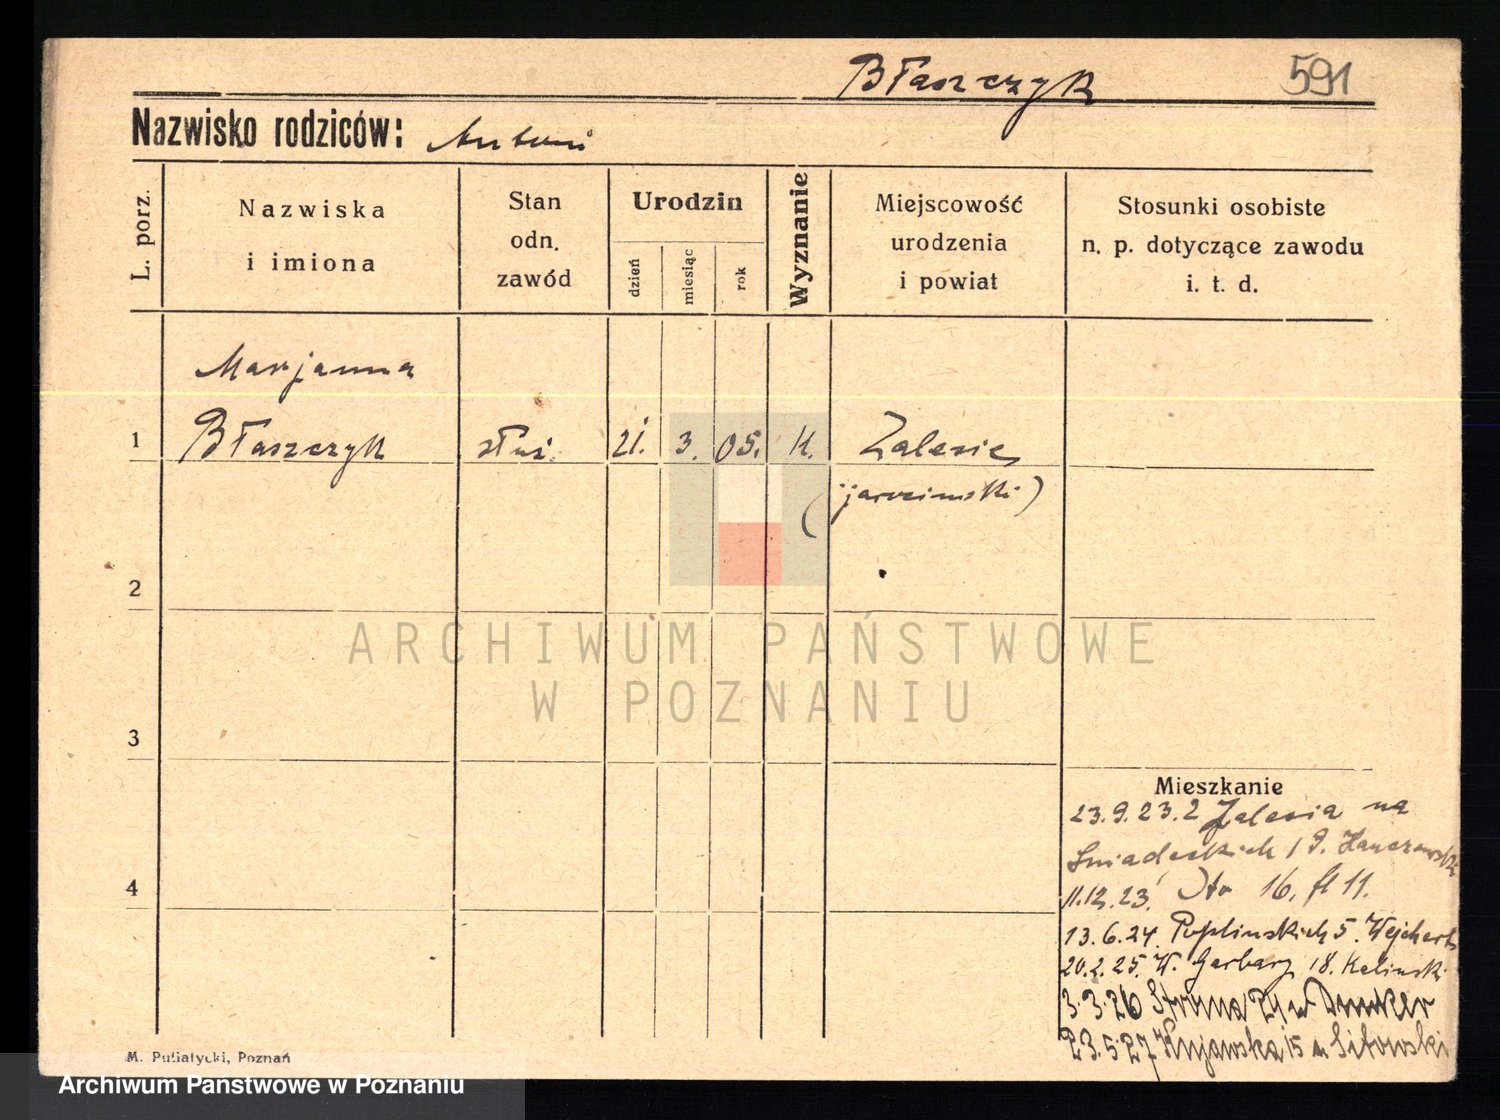 Błaszczyk 591
Nazwisko rodziców: Antoni
L. porz.
Nazwiska
i imiona
Stan
odn.
zawód
Urodzin
dzień
miesiąc
rok
Wyznanie
Miejscowość
urodzenia
i powiat
Stosunki osobiste
n. p. dotyczące zawodu
i. t. d.
Marjanna
1 Błaszczyk służ. 21. 3. 05. K. Zalesie
(jarocinski)
2
ARCHIWUM PAŃSTWOWE
W POZNANIU
3
Mieszkanie
23.9.23. z Zalesia na
Sniadeckich
4
11.12.23. 16. 11.
13.6.24. Poplinskich 5. Wejchert
20.2.25. W. Garbary 18. Kalinski
3.3.26 24
23.5.27 Kujawska 15
M. Putiatycki, Poznań
Archiwum Państwowe w Poznaniu